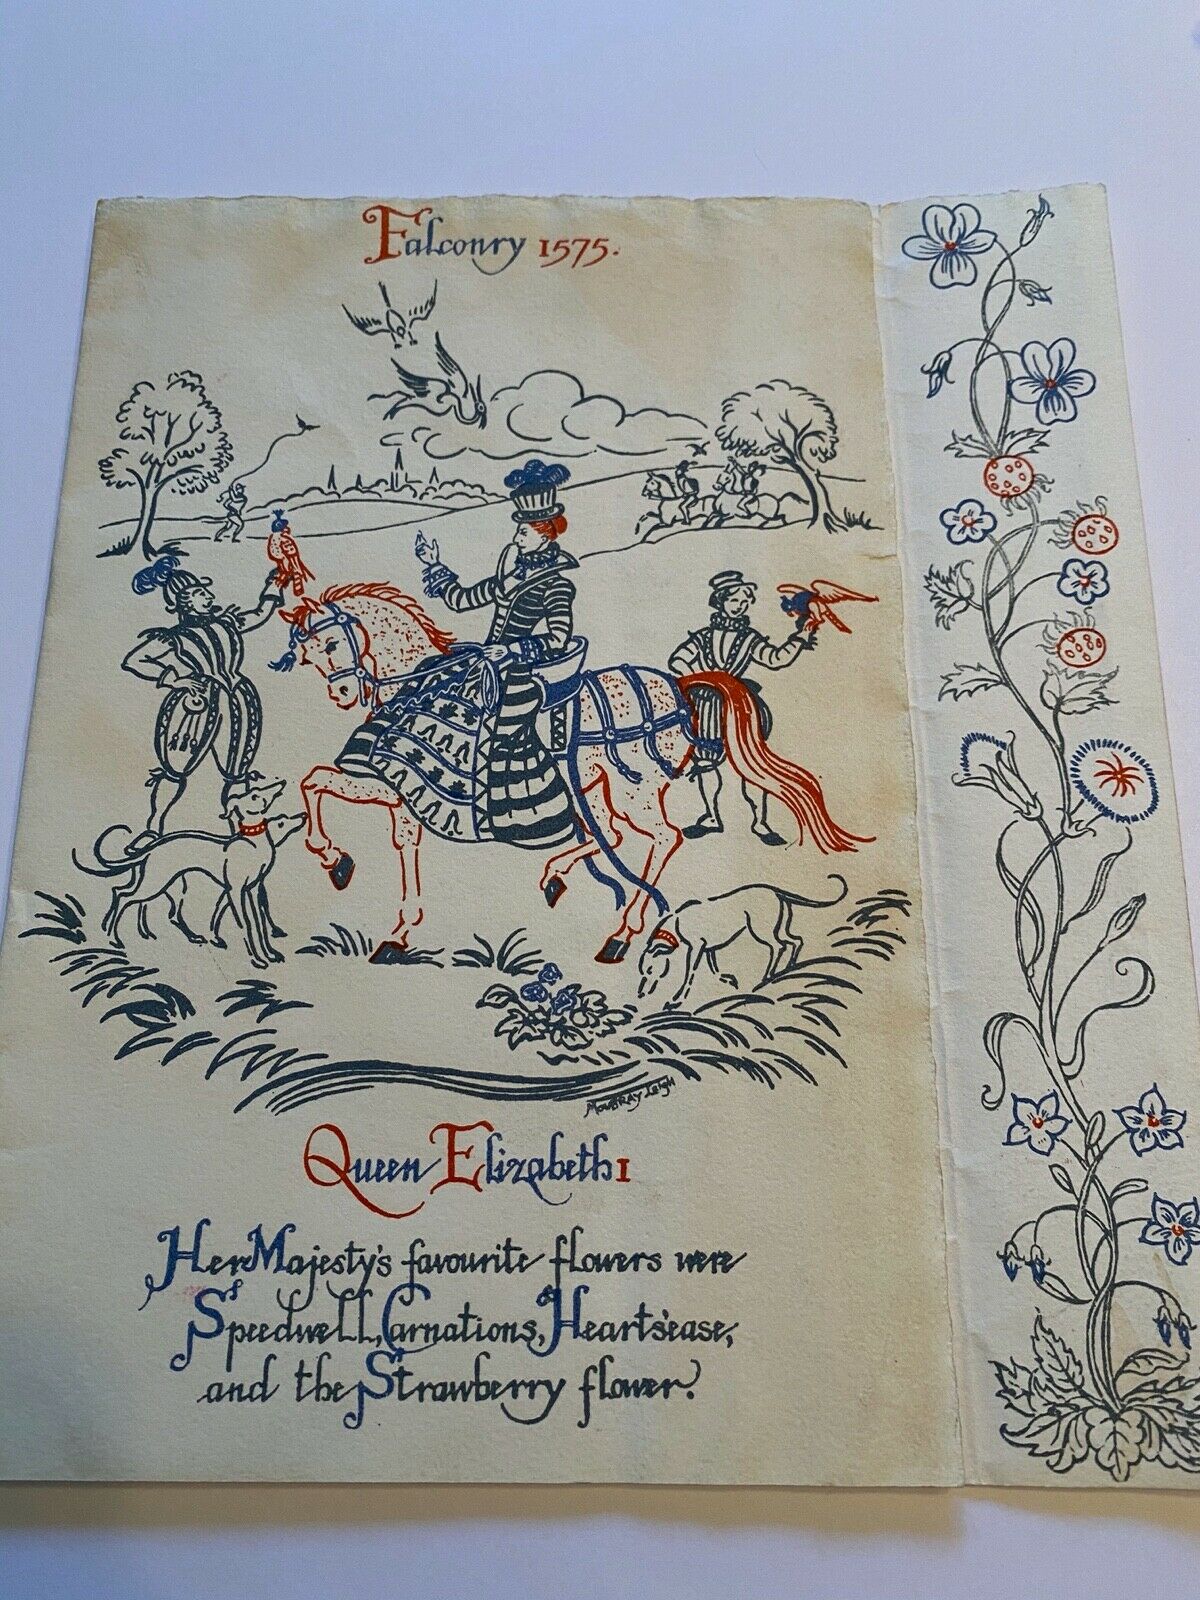 Falconry 1575.
Mowbray Leigh
Queen Elizabeth I
Her Majesty's favourite flowers were
Speedwell, Carnations, Heartsease,
and the Strawberry flower.